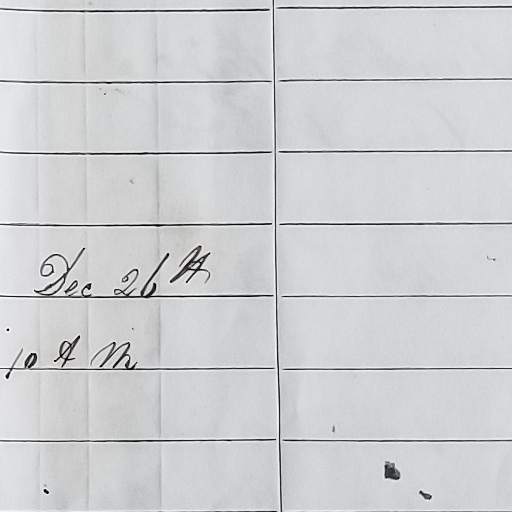 Dec 26th
10 A M